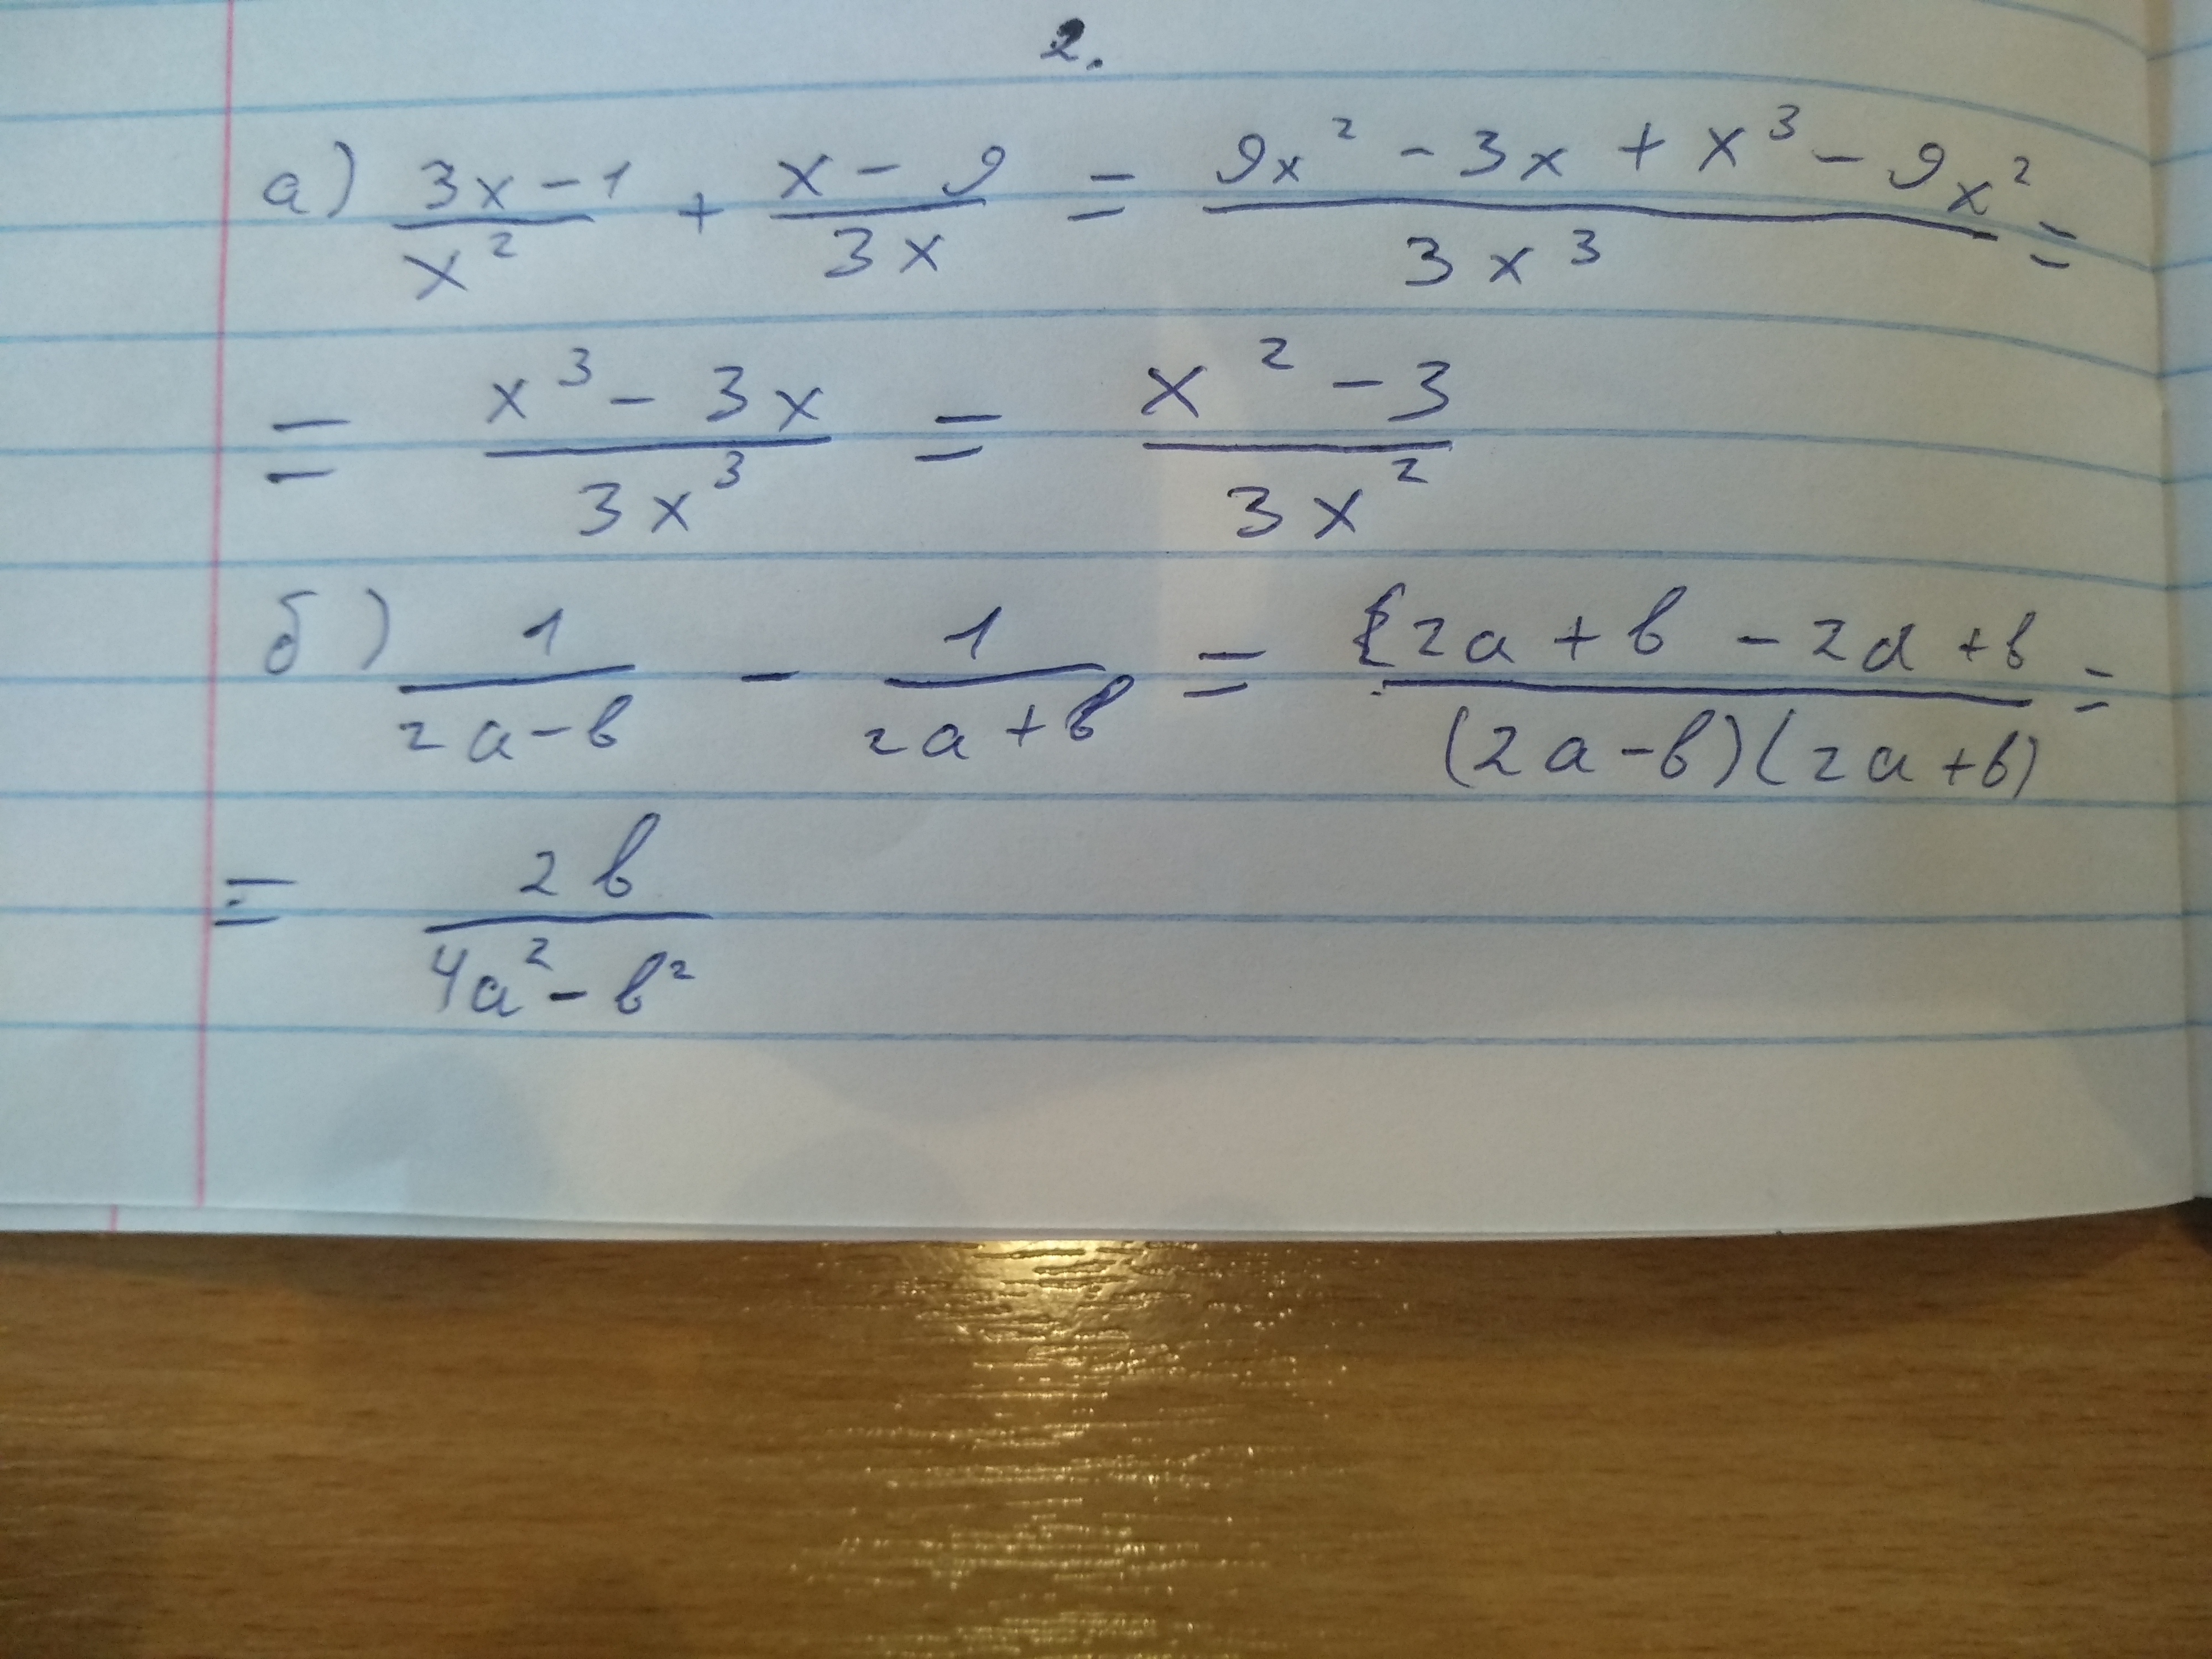 2.
а) (3x-1)/x² + (x-9)/3x = (9x² - 3x + x³ - 9x²)/3x³ =
= (x³ - 3x)/3x³ = (x² - 3)/3x²
б) 1/(2a-b) - 1/(2a+b) = (2a + b - 2a + b)/((2a-b)(2a+b)) =
= 2b/(4a² - b²)